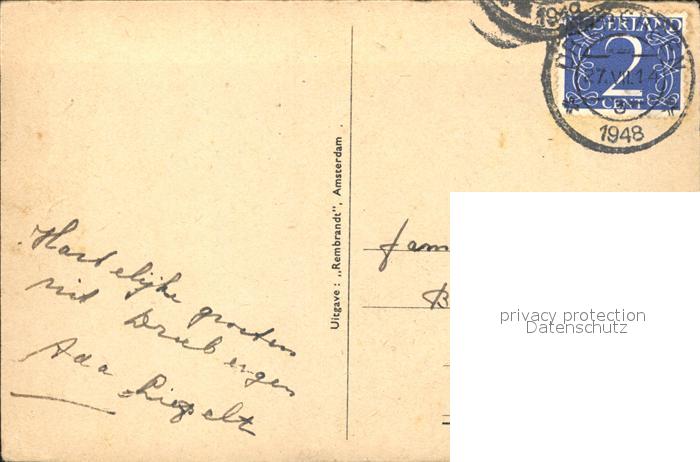 1948
NEDERLAND
2
CENT
27.VII.14
3
1948
Uitgave: „Rembrandt", Amsterdam
Hartelijke groeten
uit Driebergen
Ada
fam
B
privacy protection
Datenschutz